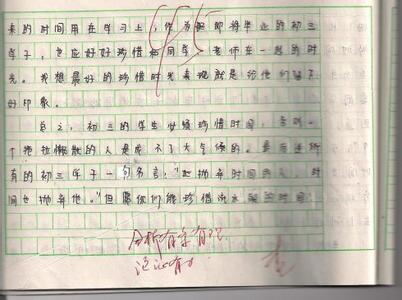 来的时间用在学习上，作为即将毕业的初三
学子，也应好好珍惜和同学、老师在一起的时
光。我想最好的珍惜时光表现就是给他们留下
好印象。
总之，初三的学生必须珍惜时间，
个拖拉懒散的人是成不了大气候的。最后送所
有的初三学子一句名言："抛弃时间的人，时
间也抛弃他。"但愿你们能珍惜流水般的时间。
分析有条有理
论证有力